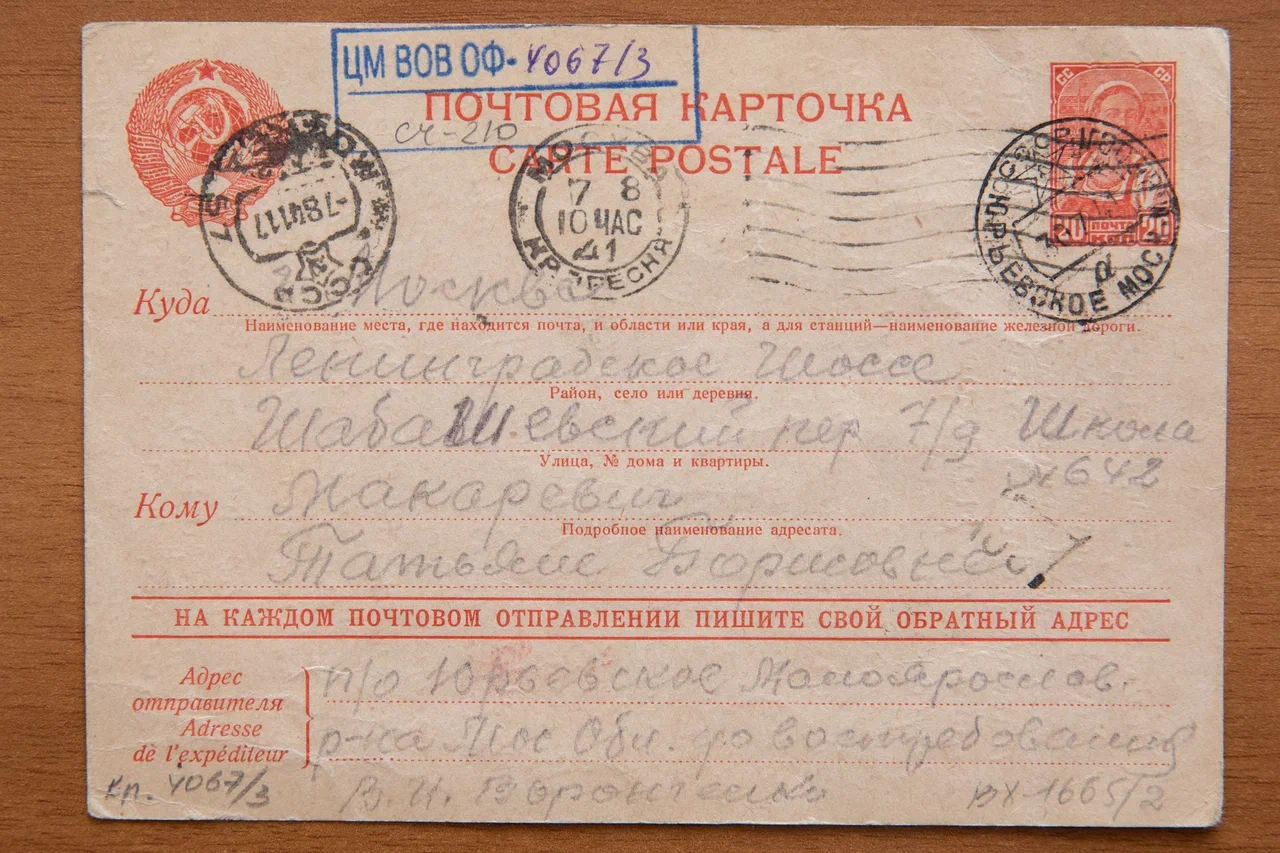 ЦМ ВОВ ОФ-4067/3
ПОЧТОВАЯ КАРТОЧКА
сч-210
CARTE POSTALE
СС СР
МОСКВА
7 8
10 ЧАС
41
КР. ПРЕСНЯ
-7841 17
ПОЧТА
20 КОП 20
ЮРЬЕВСКОЕ МОСК
Куда Москва
Наименование места, где находится почта, и области или края, а для станций—наименование железной дороги.
Ленинградское Шоссе
Район, село или деревня.
Шабашевский пер 7/9 Школа
Улица, № дома и квартиры.
№ 642
Кому Макаревич
Подробное наименование адресата.
Татьяне Борисовней
НА КАЖДОМ ПОЧТОВОМ ОТПРАВЛЕНИИ ПИШИТЕ СВОЙ ОБРАТНЫЙ АДРЕС
Адрес отправителя
Adresse de l'expéditeur
п/о Юрьевское Малоярослав.
р-на Мос Обл. до востребования
кп. 4067/3
В. И.
вх-1665/2